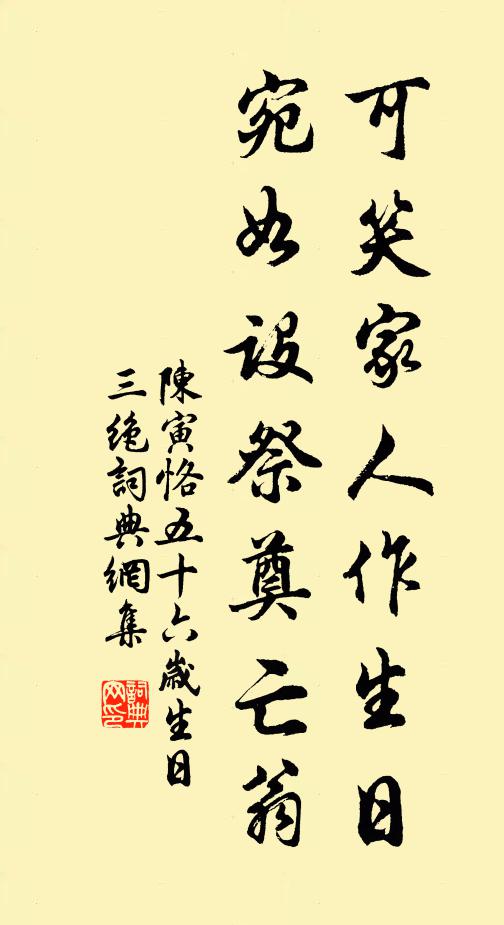 可笑家人作生日
宛如設祭奠亡翁
陳寅恪五十六歲生日
三絶詞典網集
詞典網印